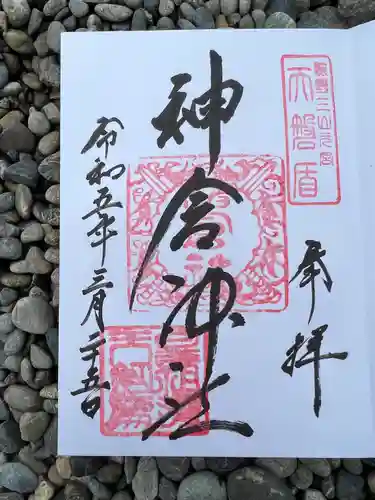 熊野三山元宮
天磐盾
奉拝
神倉神社
令和五年三月二十五日